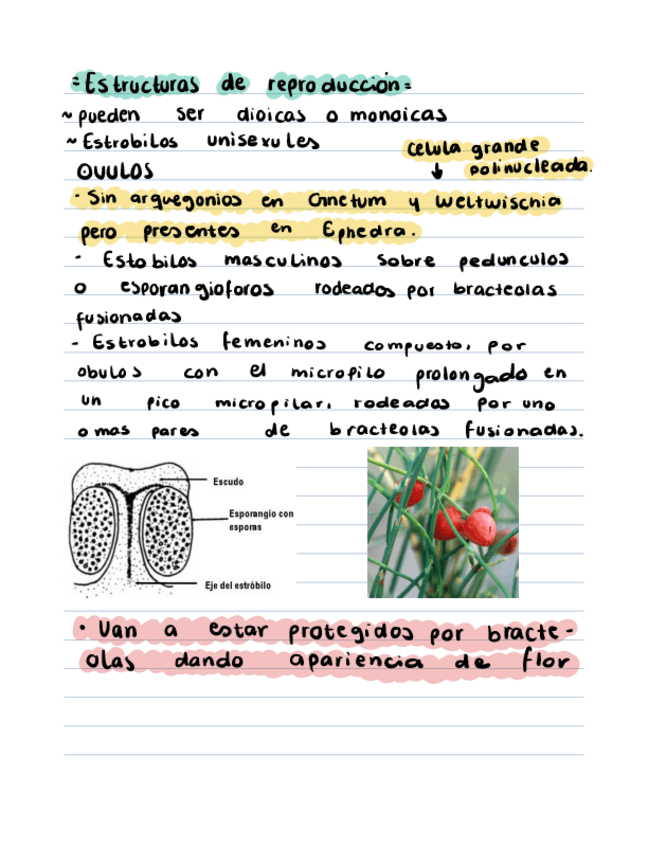 =Estructuras de reproducción=
~ pueden ser dioicas o monoicas
~ Estrobilos unisexules
celula grande
↓ polinucleada.
OVULOS
- Sin arquegonios en Gnetum y Weltwischia
pero presentes en Ephedra.
- Estobilos masculinos sobre pedunculos
o esporangioforos rodeados por bracteolas
fusionadas
- Estrobilos femeninos compuesto, por
obulos con el micropilo prolongado en
un pico micropilar, rodeados por uno
o mas pares de bracteolas fusionadas.
Escudo
Esporangio con
esporas
Eje del estróbilo
• Van a estar protegidos por bracte-
olas dando apariencia de flor